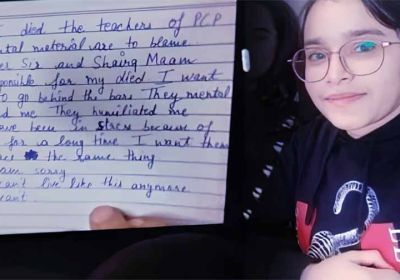 I died the teachers of PCP
ntal material are to blame
er Sir and Shairg Maam
ponsible for my died I want
to go behind the bars They mental
d me They humiliated me
ave been in stress because of
for a long time I want them
ace the same thing
am sorry
can't live like this anymore
cant